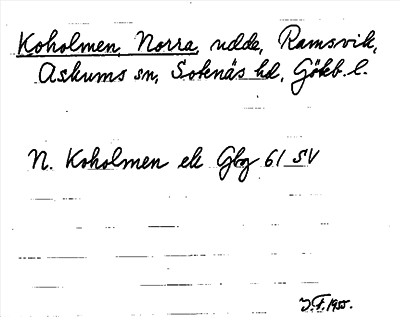 Koholmen, Norra, udde, Ramsvik,
Askums sn, Sotenäs hd, Götb. l.
N. Koholmen ek Gbg 61 SV
J.F. 1955.